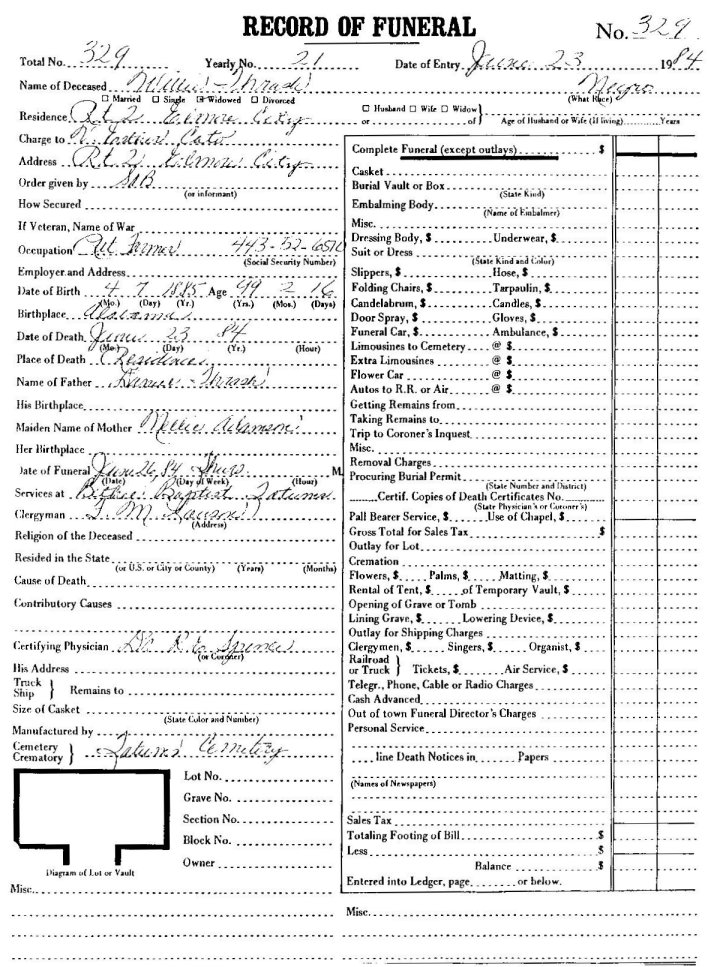 RECORD OF FUNERAL
No. 329
Total No. 329 Yearly No. 21 Date of Entry June 23 1984
Name of Deceased Willie Thrash Negro
☐ Married ☐ Single ☑ Widowed ☐ Divorced (What Race)
Residence Rt 2 Elmore City
☐ Husband ☐ Wife ☐ Widow
or of Age of Husband or Wife (If living) Years
Charge to
Address Rt 2 Elmore City
Order given by
(or informant)
How Secured
If Veteran, Name of War
Occupation Ret Farmer 443-52-6510
(Social Security Number)
Employer and Address
Date of Birth 4 7 1885 Age 99 2 16
(Mo.) (Day) (Yr.) (Yrs.) (Mos.) (Days)
Birthplace Alabama
Date of Death June 23 84
(Mo.) (Day) (Yr.) (Hour)
Place of Death Residence
Name of Father Thrash
His Birthplace
Maiden Name of Mother Millie Adamson
Her Birthplace
Date of Funeral June 26, 84 Thurs. M.
(Date) (Day of Week) (Hour)
Services at Baptist Tatums
Clergyman M. Lawson
(Address)
Religion of the Deceased
Resided in the State
(or U.S. or City or County) (Years) (Months)
Cause of Death
Contributory Causes
Certifying Physician Dr. R E Spence
(or Coroner)
His Address
Truck
Ship } Remains to
Size of Casket
(State Color and Number)
Manufactured by
Cemetery
Crematory } Tatums Cemetery
Lot No.
Grave No.
Section No.
Block No.
Owner
Diagram of Lot or Vault
Misc.
Complete Funeral (except outlays) $
Casket
Burial Vault or Box
(State Kind)
Embalming Body
(Name of Embalmer)
Misc.
Dressing Body, $ Underwear, $
Suit or Dress
(State Kind and Color)
Slippers, $ Hose, $
Folding Chairs, $ Tarpaulin, $
Candelabrum, $ Candles, $
Door Spray, $ Gloves, $
Funeral Car, $ Ambulance, $
Limousines to Cemetery @ $
Extra Limousines @ $
Flower Car @ $
Autos to R.R. or Air @ $
Getting Remains from
Taking Remains to
Trip to Coroner's Inquest
Misc.
Removal Charges
Procuring Burial Permit
(State Number and District)
Certif. Copies of Death Certificates No.
(State Physician's or Coroner's)
Pall Bearer Service, $ Use of Chapel, $
Gross Total for Sales Tax $
Outlay for Lot
Cremation
Flowers, $ Palms, $ Matting, $
Rental of Tent, $ of Temporary Vault, $
Opening of Grave or Tomb
Lining Grave, $ Lowering Device, $
Outlay for Shipping Charges
Clergymen, $ Singers, $ Organist, $
Railroad
or Truck } Tickets, $ Air Service, $
Telegr., Phone, Cable or Radio Charges
Cash Advanced
Out of town Funeral Director's Charges
Personal Service
line Death Notices in Papers
(Names of Newspapers)
Sales Tax
Totaling Footing of Bill $
Less $
Balance $
Entered into Ledger, page or below.
Misc.